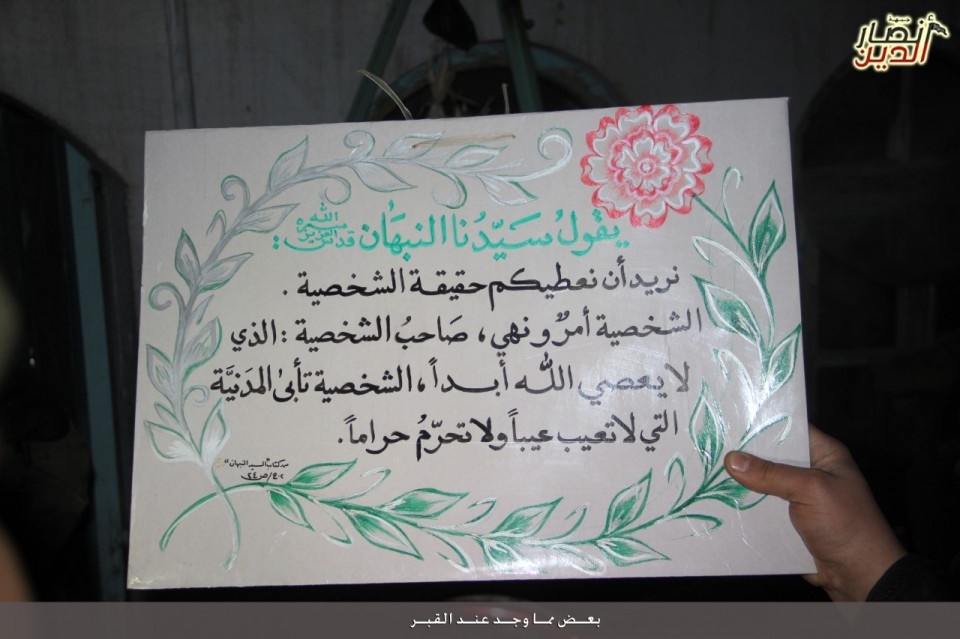 جبهة
أنصار
الدين
يقول سيّدُنا النبهان قدّس الله سره العزيز :
نريد أن نعطيكم حقيقة الشخصية .
الشخصية أمرٌ ونهي ، صَاحبُ الشخصية : الذي
لا يعصي الله أبداً ، الشخصية تأبى المدَنيَّة
التي لا تعيب عيباً ولا تحرّمُ حراماً .
من كتاب "السيد النبهان"
بعض مما وجد عند القبر